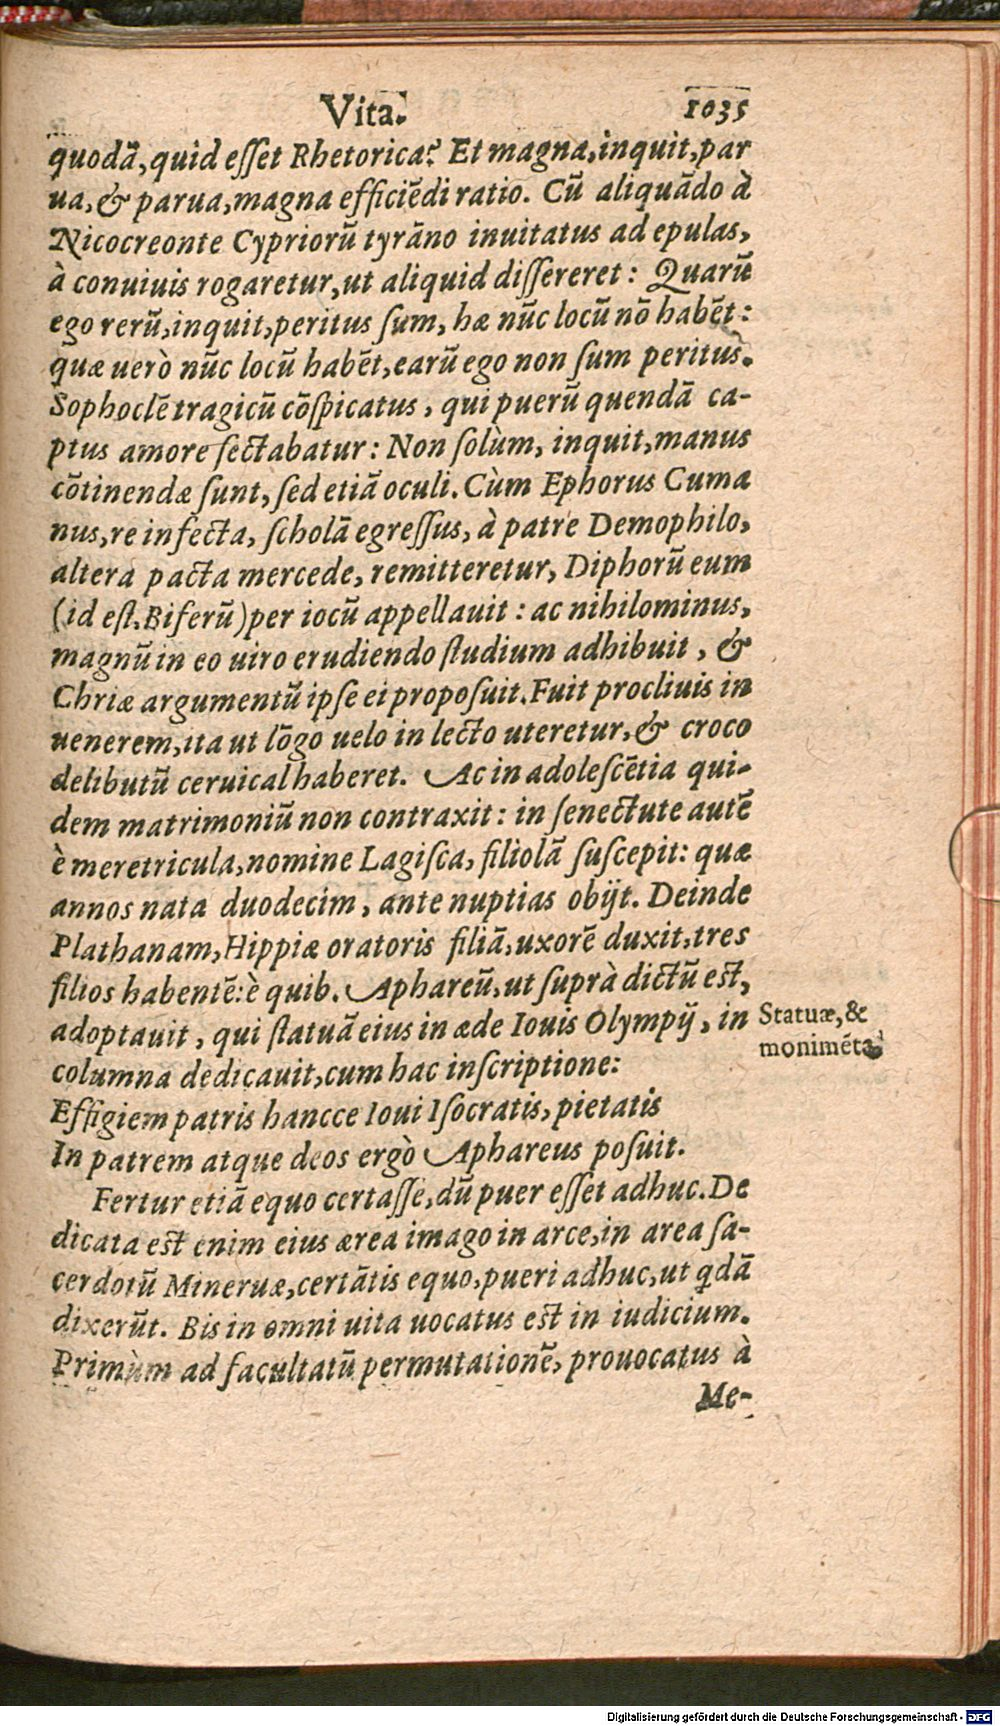 Vita. 1035
quodã, quid eſſet Rhetorica? Et magna, inquit, par
ua, & parua, magna efficiẽdi ratio. Cũ aliquãdo à
Nicocreonte Cypriorũ tyrãno inuitatus ad epulas,
à conuiuis rogaretur, ut aliquid diſſereret: Quarũ
ego rerũ, inquit, peritus ſum, hæ nũc locũ nõ habẽt:
quæ uerò nũc locũ habẽt, earũ ego non ſum peritus.
Sophoclẽ tragicũ cõſpicatus, qui puerũ quendã ca-
ptus amore ſectabatur: Non ſolùm, inquit, manus
cõtinendæ ſunt, ſed etiã oculi. Cùm Ephorus Cuma
nus, re infecta, ſcholã egreſſus, à patre Demophilo,
altera pacta mercede, remitteretur, Diphorũ eum
(id eſt, Biferũ) per iocũ appellauit: ac nihilominus,
magnũ in eo uiro erudiendo ſtudium adhibuit, &
Chriæ argumentũ ipſe ei propoſuit. Fuit procliuis in
uenerem, ita ut lõgo uelo in lecto uteretur, & croco
delibutũ ceruical haberet. Ac in adoleſcẽtia qui-
dem matrimoniũ non contraxit: in ſenectute autẽ
è meretricula, nomine Lagiſca, filiolã ſuſcepit: quæ
annos nata duodecim, ante nuptias obijt. Deinde
Plathanam, Hippiæ oratoris filiã, uxorẽ duxit, tres
filios habentẽ: è quib. Aphareũ, ut ſuprà dictũ eſt,
adoptauit, qui ſtatuã eius in æde Iouis Olympij, in
columna dedicauit, cum hac inſcriptione:
Effigiem patris hancce Ioui Iſocratis, pietatis
In patrem atque deos ergò Aphareus poſuit.
Fertur etiã equo certaſſe, dũ puer eſſet adhuc. De
dicata eſt enim eius ærea imago in arce, in area ſa-
cerdotũ Mineruæ, certãtis equo, pueri adhuc, ut ꝗdã
dixerũt. Bis in omni uita uocatus eſt in iudicium.
Primùm ad facultatũ permutationẽ, prouocatus à
Me-
Statuæ, &
monimẽta.
Digitalisierung gefördert durch die Deutsche Forschungsgemeinschaft - DFG